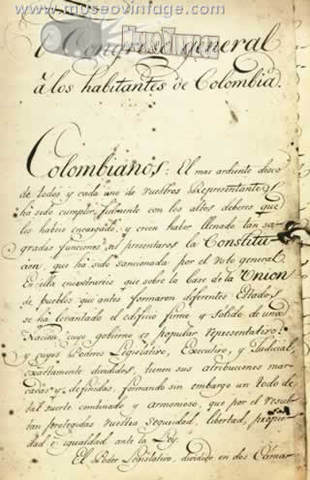 www.museovintage.com
El Congreso general
á los habitantes de Colombia.
Colombianos: El mas ardiente deseo
de todos y cada uno de vuestros Representantes
ha sido cumplir fielmente con los altos deberes que
les habeis encargado, y creen haber llenado tan sa-
gradas funciones al presentaros la Constitu-
cion que ha sido sancionada por el voto general.
En ella encontrareis que sobre la base de la Union
de pueblos que antes formaron diferentes Estados,
se ha levantado el edificio firme y solido de una
Nacion, cuyo gobierno es popular representativo,
y cuyos Poderes Legislativo, Executivo, y Judicial,
exactamente divididos, tienen sus atribuciones mar-
cadas y definidas, formando sin embargo un todo de
tal suerte combinado y armonioso, que por él resul-
tan protegidas vuestra seguridad, libertad, propie-
dad, é igualdad ante la Ley.
El Poder Legislativo, dividido en dos Camar-